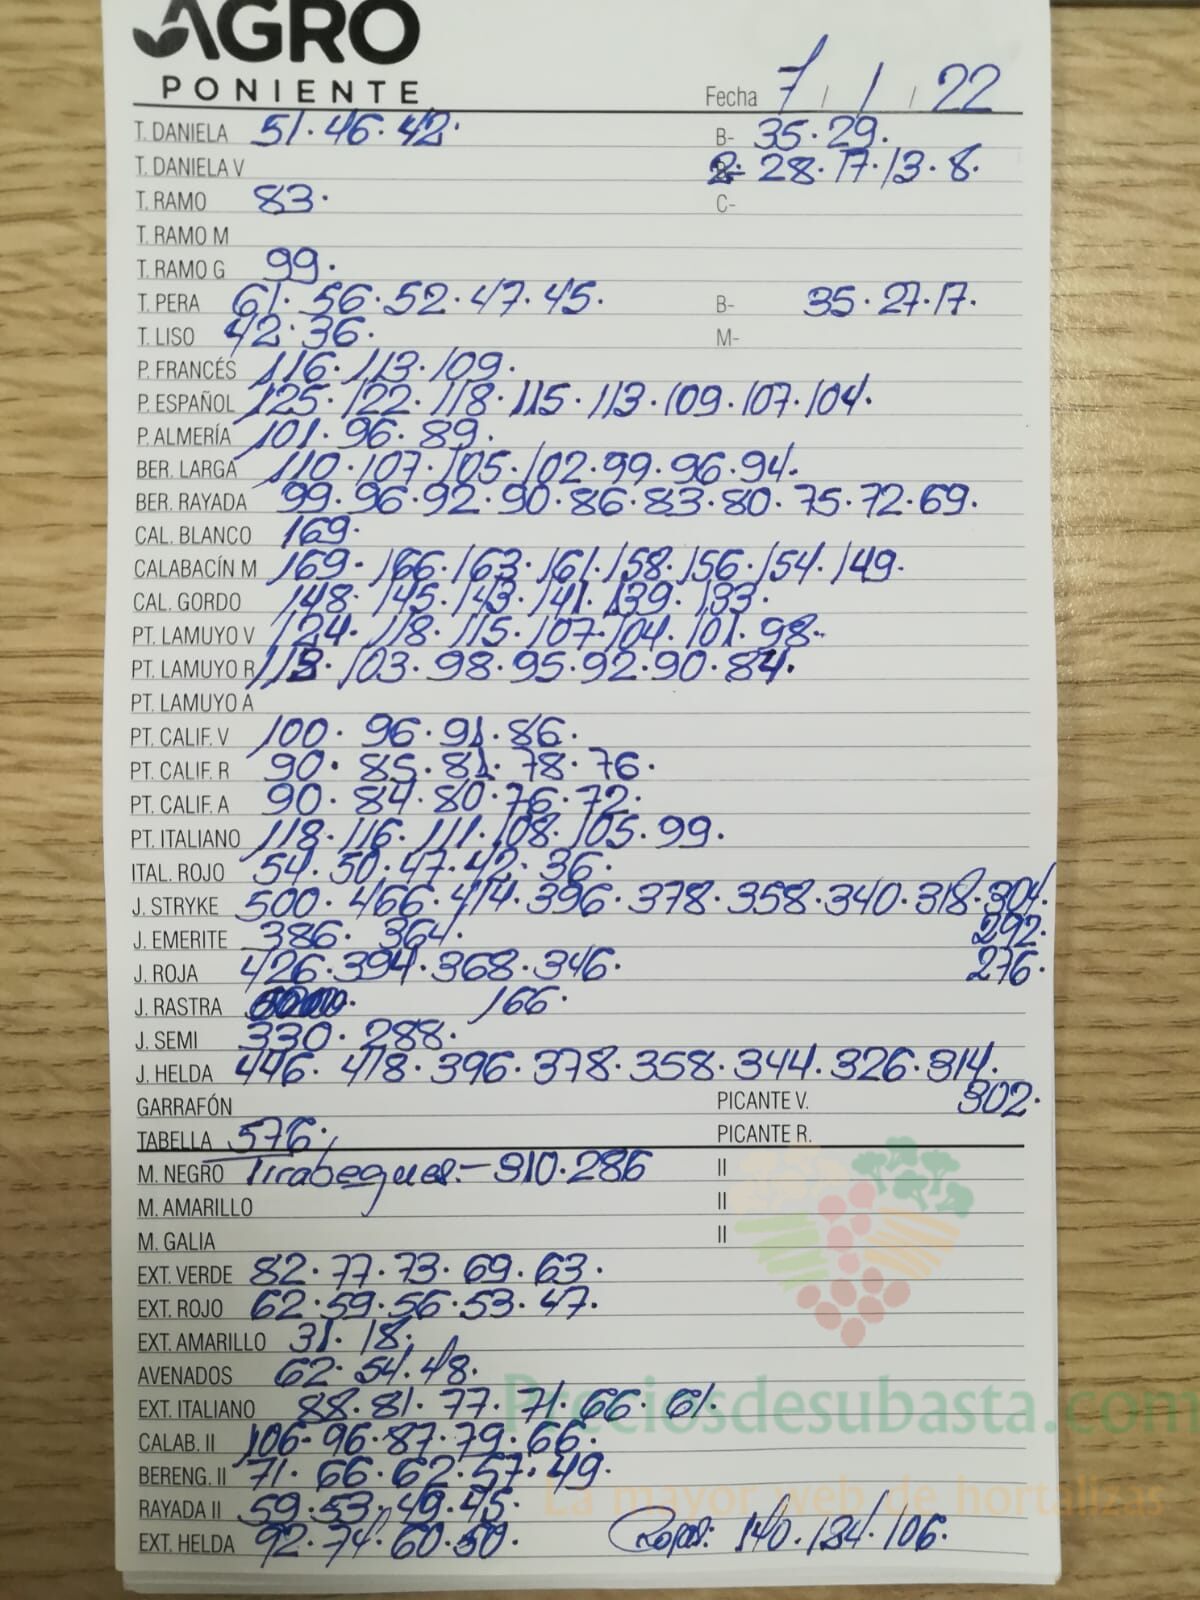 AGRO
PONIENTE
Fecha 7 / 1 / 22
T. DANIELA 51.46.42. B- 35.29.
T. DANIELA V 2- 28.17.13.8.
T. RAMO 83. C-
T. RAMO M
T. RAMO G 99.
T. PERA 61.56.52.47.45. B- 35.27.17.
T. LISO 42.36. M-
P. FRANCÉS 116.113.109.
P. ESPAÑOL 125.122.118.115.113.109.107.104.
P. ALMERÍA 101.96.89.
BER. LARGA 110.107.105.102.99.96.94.
BER. RAYADA 99.96.92.90.86.83.80.75.72.69.
CAL. BLANCO 169.
CALABACÍN M 169.166.163.161.158.156.154.149.
CAL. GORDO 148.145.143.141.139.133.
PT. LAMUYO V 124.118.115.107.104.101.98.
PT. LAMUYO R 113.103.98.95.92.90.84.
PT. LAMUYO A
PT. CALIF. V 100.96.91.86.
PT. CALIF. R 90.85.81.78.76.
PT. CALIF. A 90.84.80.76.72.
PT. ITALIANO 118.116.111.108.105.99.
ITAL. ROJO 54.50.47.42.36.
J. STRYKE 500.466.414.396.378.358.340.318.304.
J. EMERITE 386.364. 292.
J. ROJA 426.394.368.346. 276.
J. RASTRA 166.
J. SEMI 330.288.
J. HELDA 446.418.396.378.358.344.326.314.
GARRAFÓN PICANTE V. 302.
TABELLA 576. PICANTE R.
M. NEGRO Tirabeques.- 310.286 II
M. AMARILLO II
M. GALIA II
EXT. VERDE 82.77.73.69.63.
EXT. ROJO 62.59.56.53.47.
EXT. AMARILLO 31.18.
AVENADOS 62.54.48.
EXT. ITALIANO 88.81.77.71.66.61.
Preciosdesubasta.com
CALAB. II 106.96.87.79.66.
BERENG. II 71.66.62.57.49.
La mayor web de hortalizas
RAYADA II 59.53.49.45.
EXT. HELDA 92.74.60.50. 140.134.106.